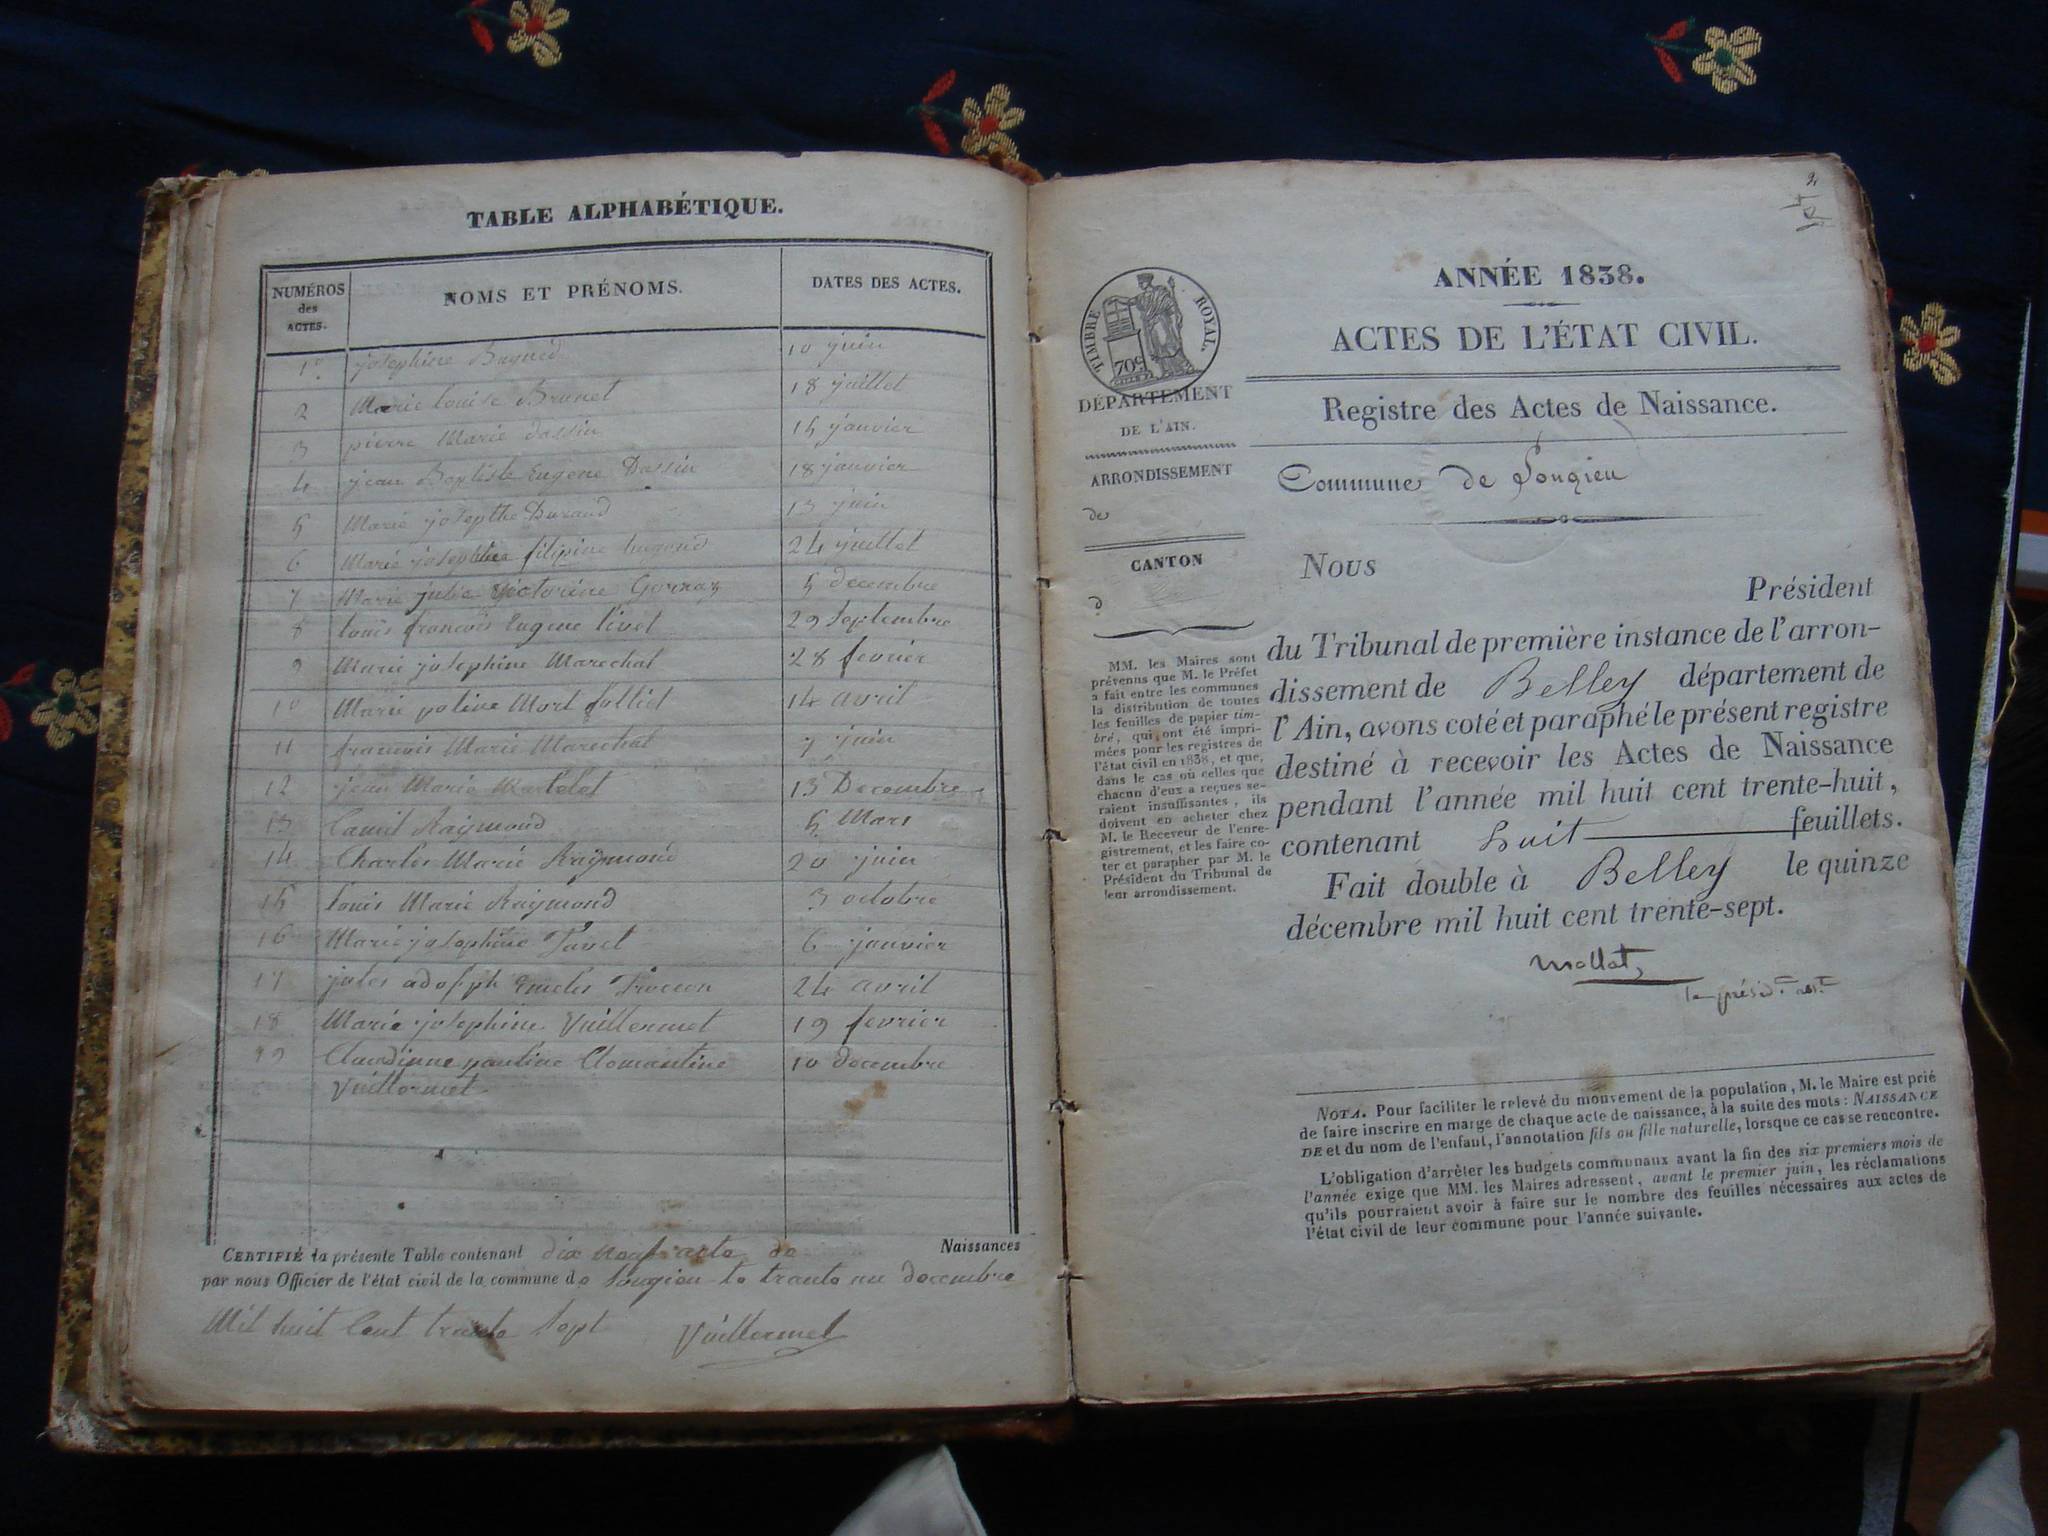 TABLE ALPHABÉTIQUE.
NUMÉROS des ACTES. NOMS ET PRÉNOMS. DATES DES ACTES.
1º josephine 10 juin
2 Marie louise Brunet 18 juillet
3 pierre Marie dassin 15 janvier
4 jean Baptiste Eugene Dassin 18 janvier
5 Marie josepthe Durand 13 juin
6 Marie josephine filipine hugond 24 juillet
7 Marie julie Victorine 5 decembre
8 louis francois Eugene livet 29 Septembre
9 Marie josephine Marechal 28 fevrier
10 Marie poline Mort folliet 14 avril
11 francois Marie Marechal 7 juin
12 jean Marie Martelet 13 Decembre
13 Camil Raymond 5 Mars
14 Charles Marie Raymond 20 juin
15 louis Marie Raymond 3 octobre
16 Marie josephine 6 janvier
17 jules adolph 24 avril
18 Marie josephine Vuillermet 19 fevrier
19 Claudinne pauline Clomantine 10 decembre
Vuillermet
CERTIFIÉ la présente Table contenant dix neuf acte de Naissances
par nous Officier de l'état civil de la commune de Songieu le trante un decembre
Mil huit Cent trante Sept Vuillermet
2
TIMBRE ROYAL.
70c
DÉPARTEMENT
DE L'AIN.
ARRONDISSEMENT
de
CANTON
d
MM. les Maires sont
prévenus que M. le Préfet
a fait entre les communes
la distribution de toutes
les feuilles de papier tim-
bré, qui ont été impri-
mées pour les registres de
l'état civil en 1838, et que,
dans le cas où celles que
chacun d'eux a reçues se-
raient insuffisantes, ils
doivent en acheter chez
M. le Receveur de l'enre-
gistrement, et les faire co-
ter et parapher par M. le
Président du Tribunal de
leur arrondissement.
ANNÉE 1838.
ACTES DE L'ÉTAT CIVIL.
Registre des Actes de Naissance.
Commune de Songieu
Nous
Président
du Tribunal de première instance de l'arron-
dissement de Belley département de
l'Ain, avons coté et paraphé le présent registre
destiné à recevoir les Actes de Naissance
pendant l'année mil huit cent trente-huit,
contenant huit feuillets.
Fait double à Belley le quinze
décembre mil huit cent trente-sept.
Mollat,
NOTA. Pour faciliter le relevé du mouvement de la population, M. le Maire est prié
de faire inscrire en marge de chaque acte de naissance, à la suite des mots: NAISSANCE
DE et du nom de l'enfant, l'annotation fils ou fille naturelle, lorsque ce cas se rencontre.
L'obligation d'arrêter les budgets communaux avant la fin des six premiers mois de
l'année exige que MM. les Maires adressent, avant le premier juin, les réclamations
qu'ils pourraient avoir à faire sur le nombre des feuilles nécessaires aux actes de
l'état civil de leur commune pour l'année suivante.